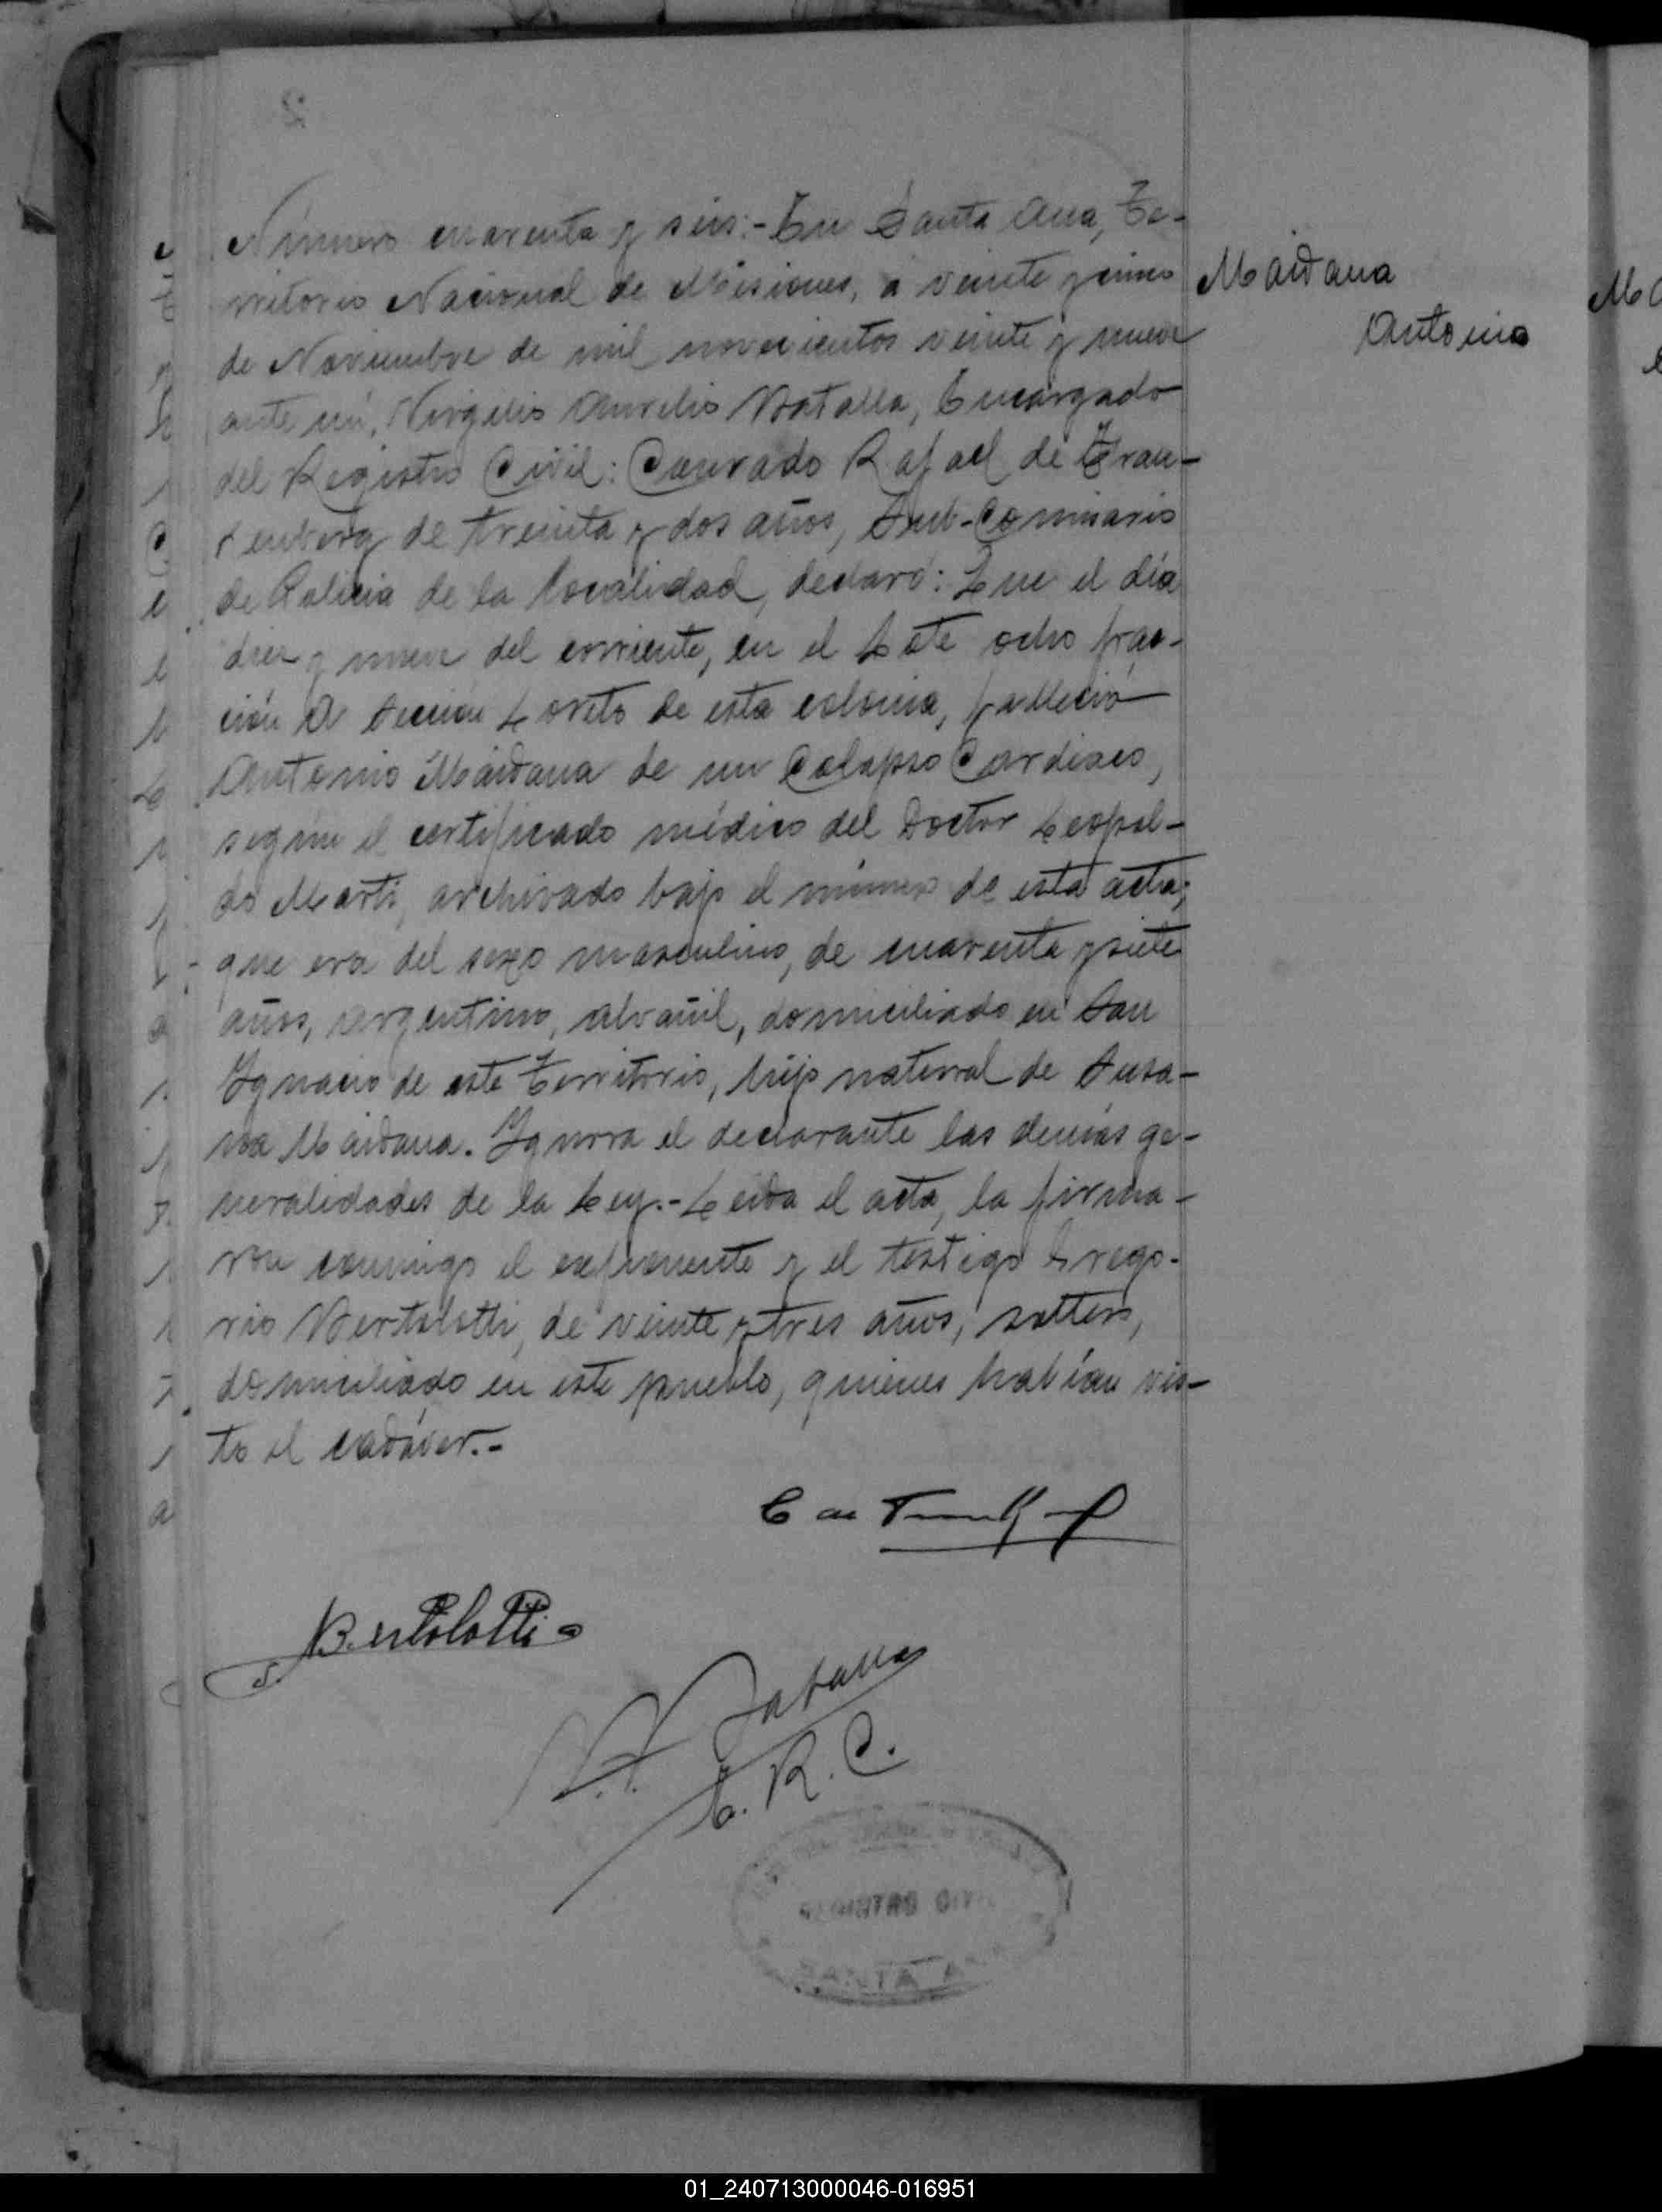 Número cuarenta y seis:- En Santa Ana, Te-
rritorio Nacional de Misiones, a veinte y cinco
de Noviembre de mil novecientos veinte y nueve
ante mí, Virgilio Aurelio Batalla, Encargado
del Registro Civil: Conrado Rafael de Trau-
tenberg de treinta y dos años, Sub-Comisario
de Policia de la localidad, declaró: Que el día
diez y nueve del corriente, en el Lote ocho frac-
ción A Sección Loreto de esta colonia, falleció
Antonio Maidana de un Colapso Cardiaco,
según el certificado médico del Doctor Leopol-
do Marti, archivado bajo el número de esta acta;
que era del sexo masculino, de cuarenta y siete
años, argentino, albañil, domiciliado en San
Ignacio de este Territorio, hijo natural de Susa-
na Maidana. Ignora el declarante las demás ge-
neralidades de la Ley.- Leida el acta, la firma-
ron conmigo el exponente y el testigo Grego-
rio Bertolotti, de veinte y tres años, soltero,
domiciliado en este pueblo, quienes habían vis-
to el cadáver.-
Maidana
Antonio
Ma
C de
G. Bertolotti
V. A. Batalla
E. R. C.
REGISTRO CIVI
SANTA A
01_240713000046-016951